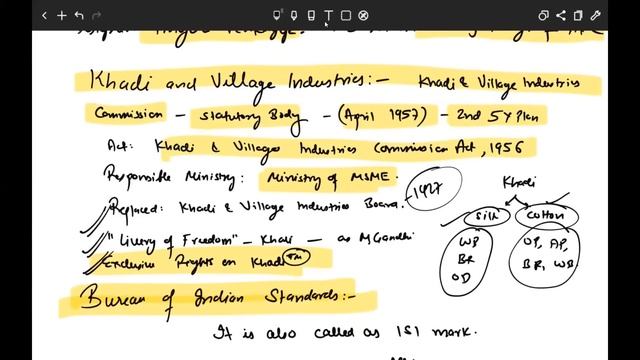 Khadi and Village Industries:- Khadi & Village Industries
Commission - Statutory Body - (April 1957) - 2nd 5 Y Plan
Act: Khadi & Village Industries Commission Act, 1956
Responsible Ministry: Ministry of MSME.
Replaced: Khadi & Village Industries Board.
"Livery of Freedom" - Khadi - as M Gandhi
Exclusive Rights on Khadi TM
Khadi
Silk Cotton
WB
BR
OD
UP, AP,
BR, WB
Bureau of Indian Standards:-
It is also called as ISI mark.